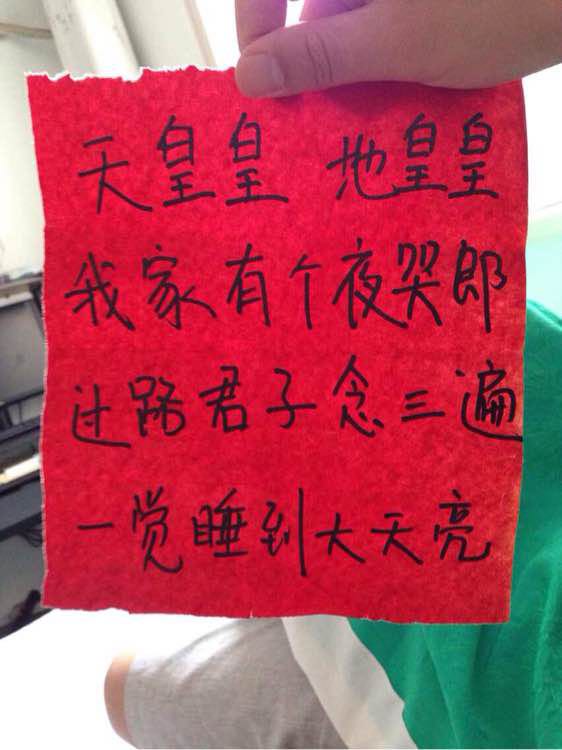 天皇皇 地皇皇
我家有个夜哭郎
过路君子念三遍
一觉睡到大天亮